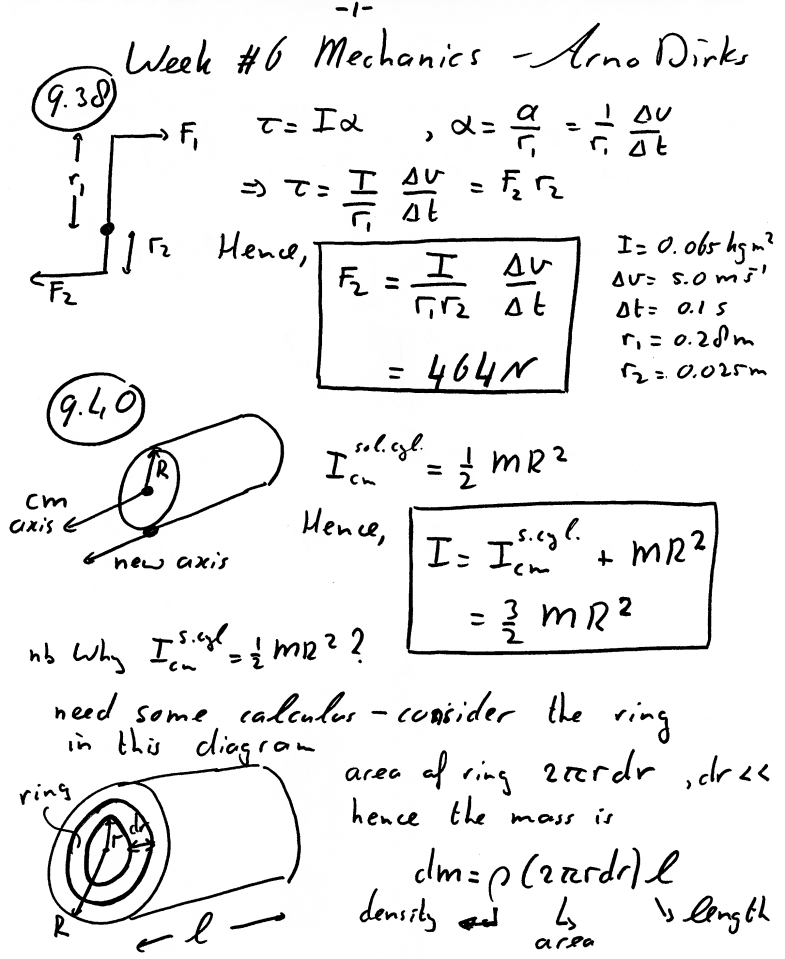 -1-
Week #6 Mechanics - Arno Dirks
9.38
F₁
r₁
r₂
F₂
τ = Iα , α = a/r₁ = 1/r₁ Δv/Δt
⇒ τ = I/r₁ Δv/Δt = F₂ r₂
Hence,
F₂ = I/(r₁r₂) Δv/Δt
= 464 N
I = 0.065 kg m²
Δv = 5.0 m s⁻¹
Δt = 0.1 s
r₁ = 0.28 m
r₂ = 0.025 m
9.40
R
cm
axis
new axis
I_cm^sol.cyl. = ½ mR²
Hence,
I = I_cm^s.cyl. + mR²
= 3/2 mR²
nb Why I_cm^s.cyl = ½ mR² ?
need some calculus - consider the ring
in this diagram
ring
r
dr
R
l
area of ring 2πrdr , dr <<
hence the mass is
dm = ρ(2πrdr) l
density
area
length